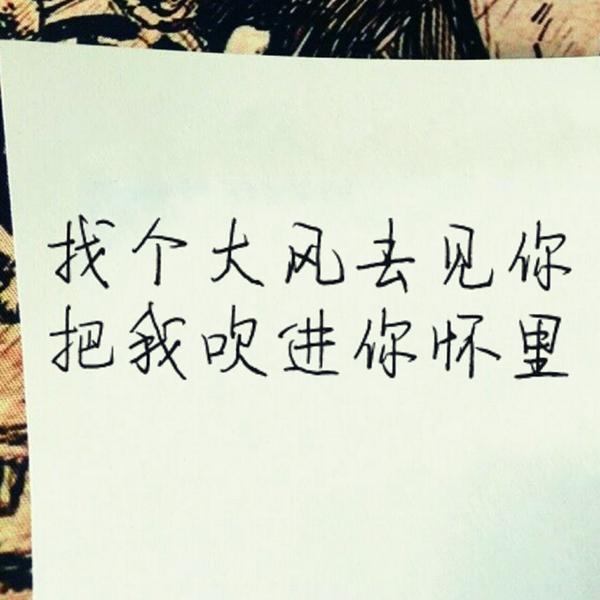 找个大风去见你
把我吹进你怀里